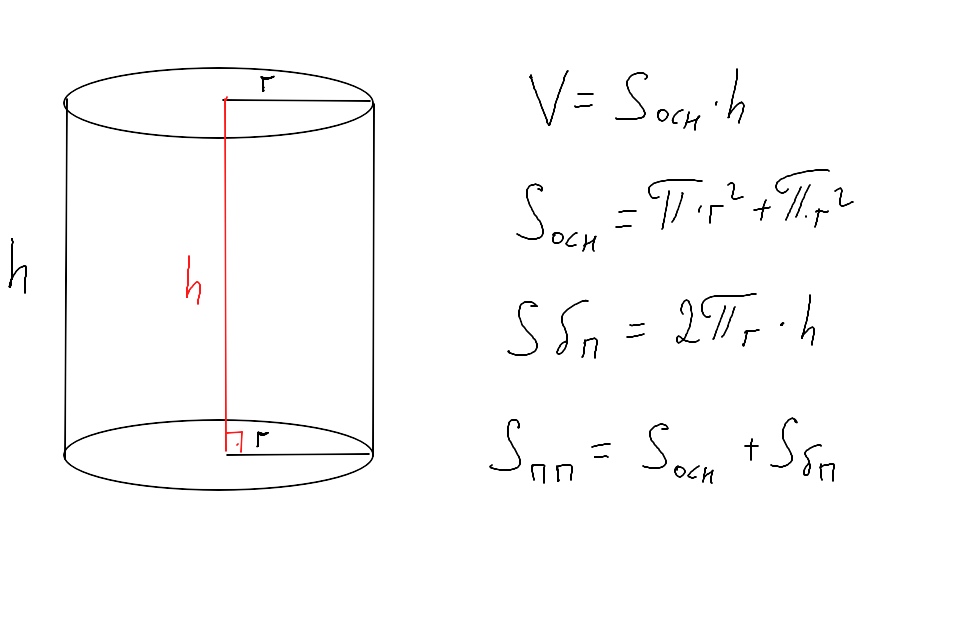 r
h
h
r
V = Sосн · h
Sосн = π · r² + π · r²
Sбп = 2πr · h
Sпп = Sосн + Sбп